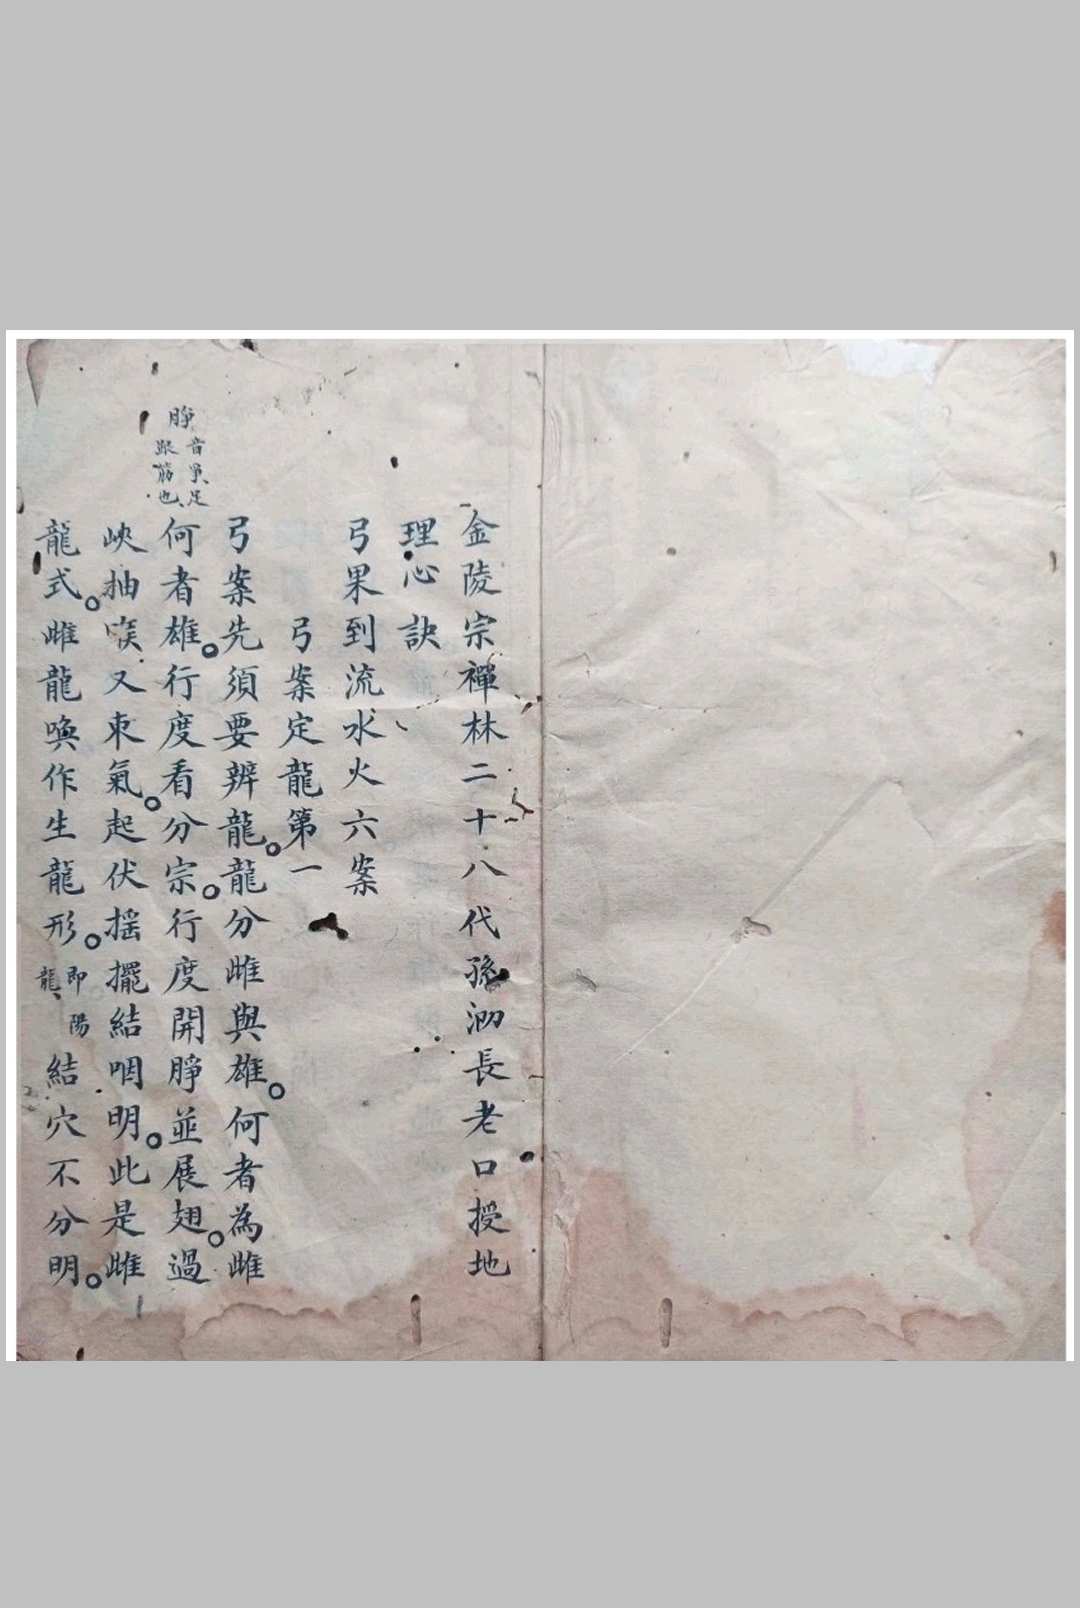 金陵宗禪林二十八代孫泗長老口授地
理心訣
弓果到流水火六案
弓案定龍第一
弓案先須要辨龍。龍分雌與雄。何者為雌
何者雄。行度看分宗。行度開脝並展翅。過
峽抽喉又束氣。起伏搖擺結咽明。此是雌
龍式。雌龍喚作生龍形。即陽龍結穴不分明。
音爭足
跟筋也